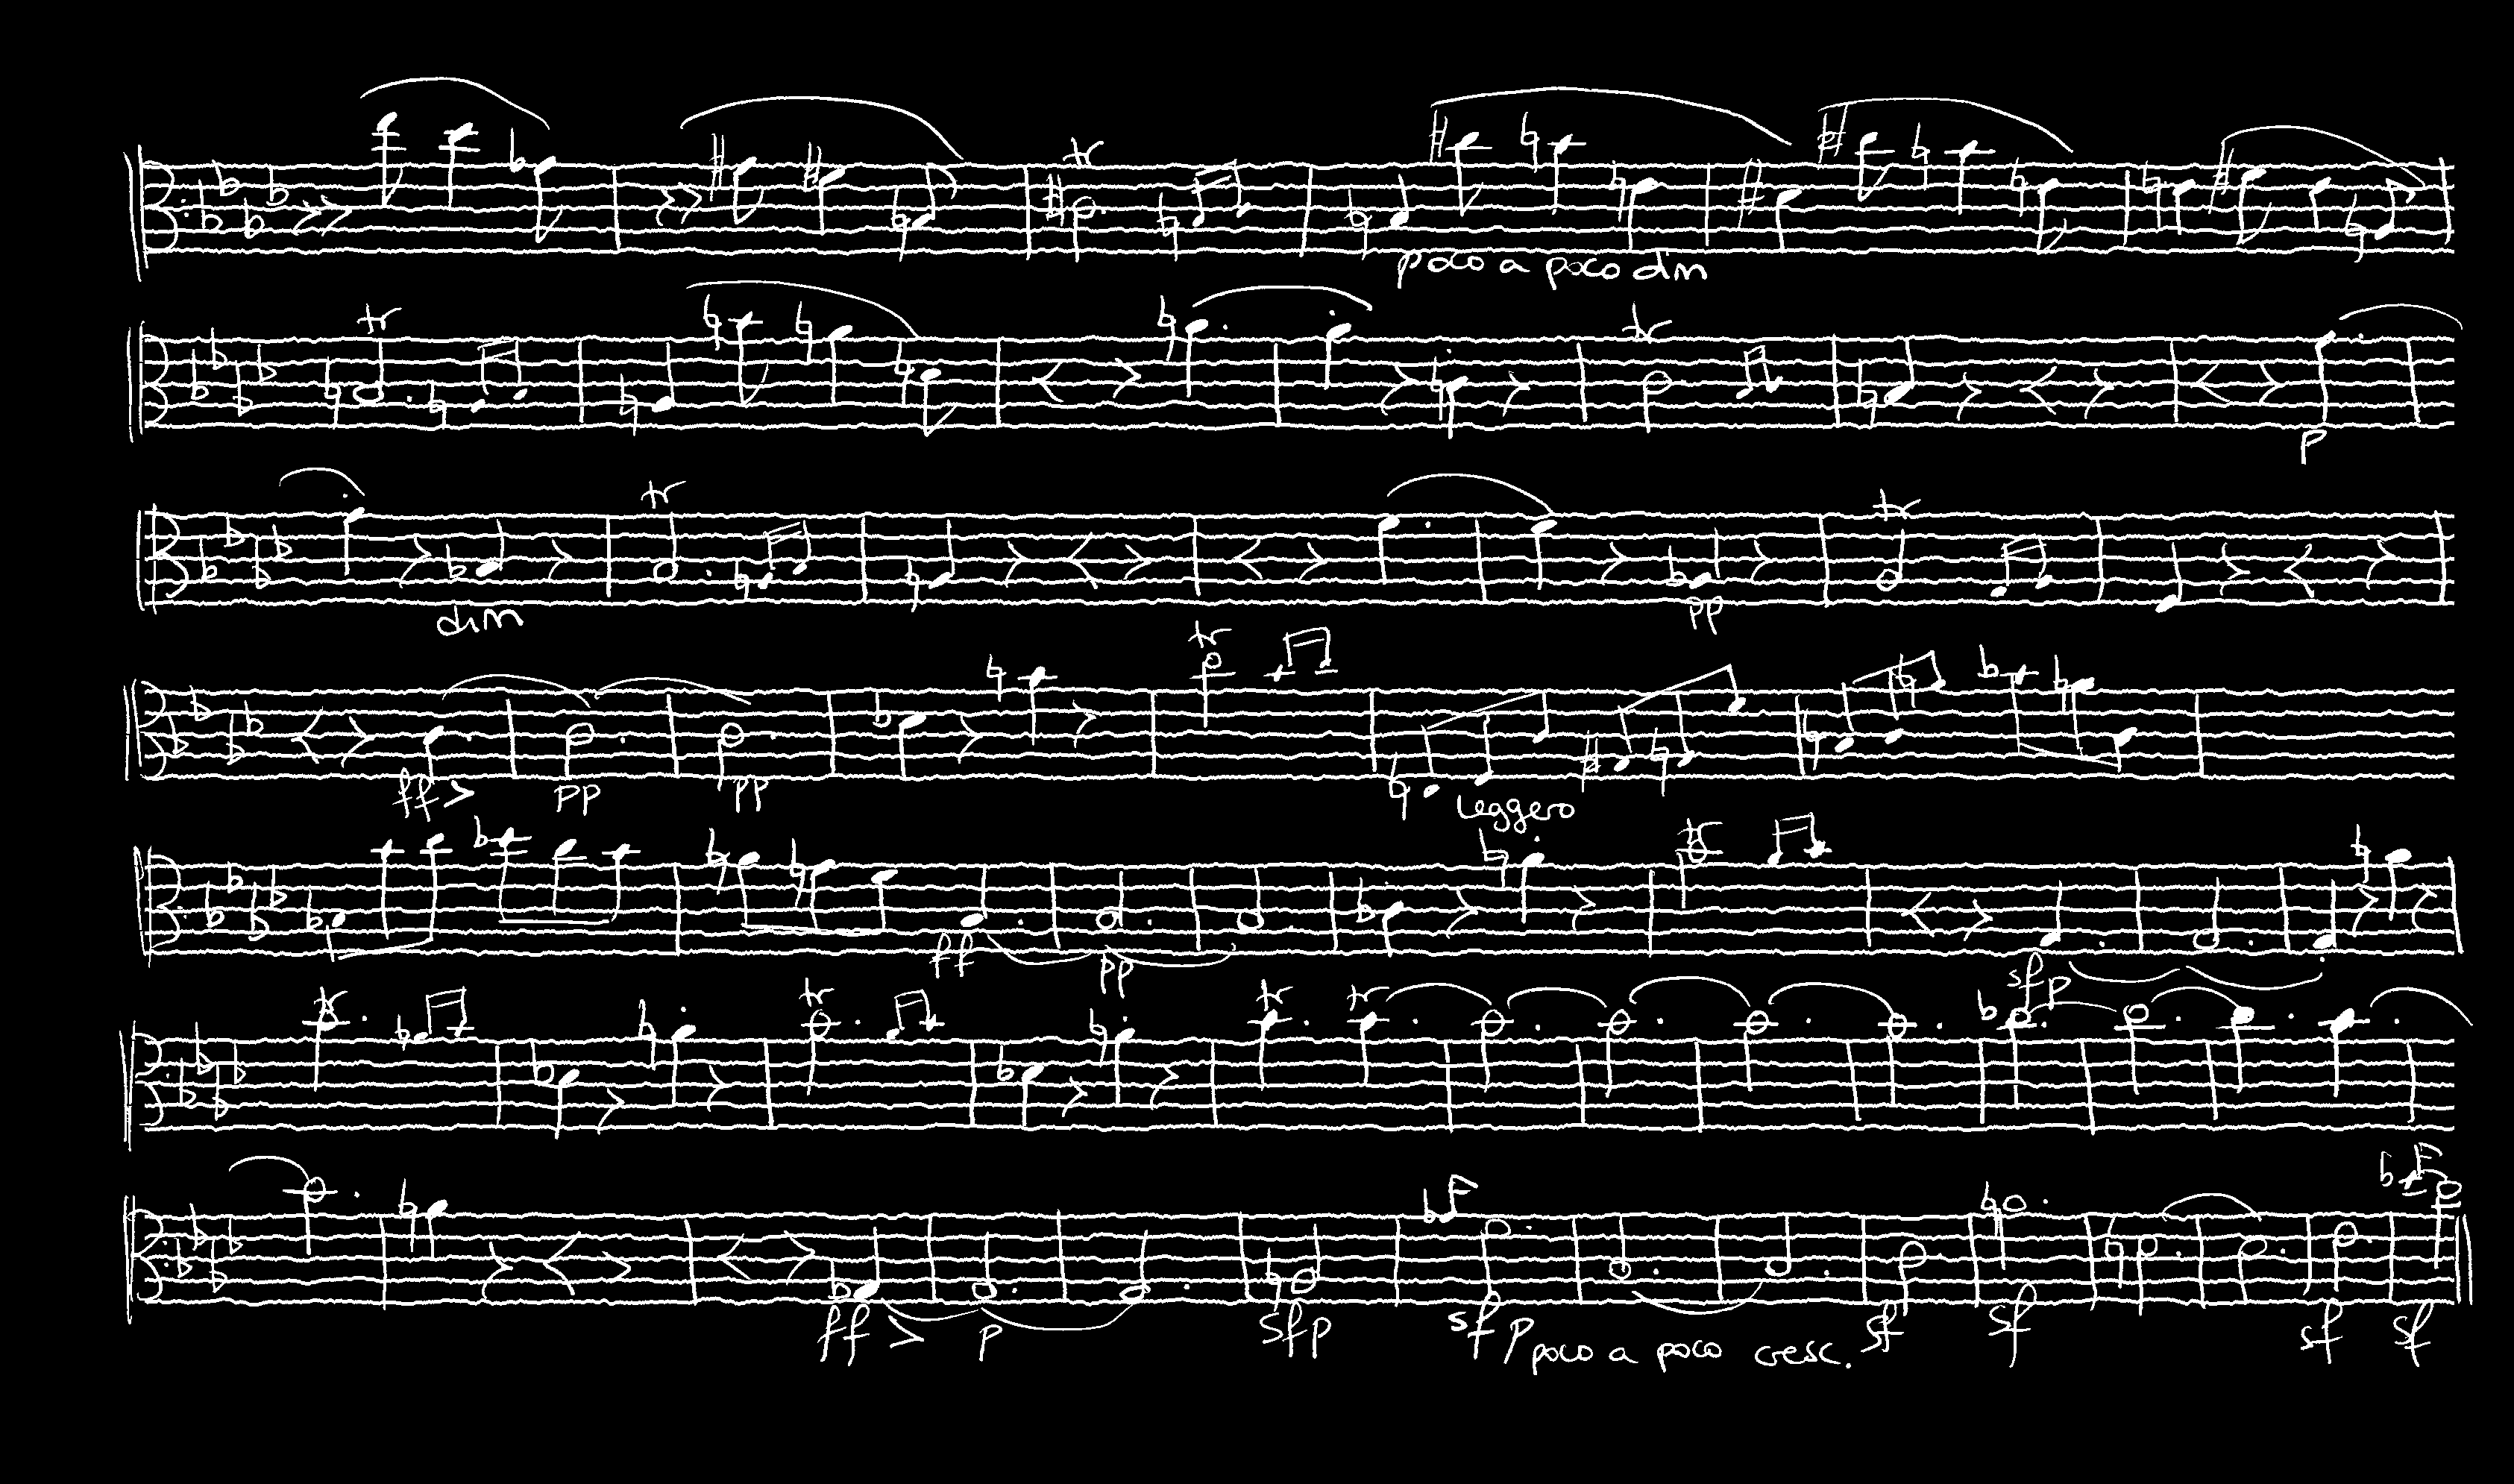 tr
poco a poco dim
tr tr
p
tr tr
dim pp
tr
ff > pp pp leggero
tr
ff pp sfp
tr tr tr tr
ff > p sfp sfp poco a poco cresc. sf sf sf sf